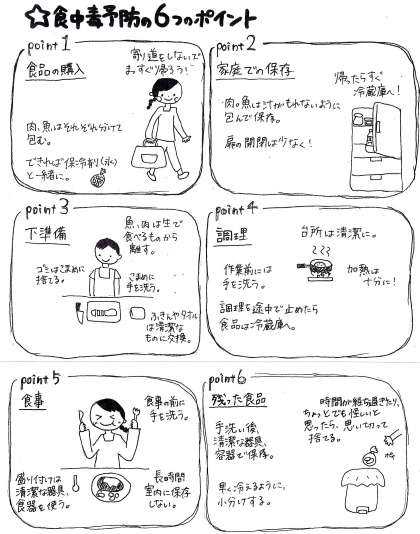 ☆食中毒予防の6つのポイント
point 1
食品の購入
寄り道をしないで
まっすぐ帰ろう!
肉、魚はそれぞれ分けて
包む。
できれば保冷剤(氷)
と一緒に。
point 2
家庭での保存
帰ったらすぐ
冷蔵庫へ!
肉、魚は汁がもれないように
包んで保存。
扉の開閉は少なく!
point 3
下準備
魚、肉は生で
食べるものから
離す。
ゴミはこまめに
捨てる。
こまめに
手を洗う。
ふきんやタオル
は清潔な
ものに交換。
point 4
調理
台所は清潔に。
作業前には
手を洗う。
加熱は
十分に!
調理を途中で止めたら
食品は冷蔵庫へ。
point 5
食事
食事の前に
手を洗う。
盛り付けは
清潔な器具、
食器を使う。
長時間
室内に保存
しない。
point 6
残った食品
時間が経ち過ぎたり、
ちょっとでも怪しいと
思ったら、思い切って
捨てる。
手洗い後、
清潔な器具、
容器で保存。
早く冷えるように、
小分けする。